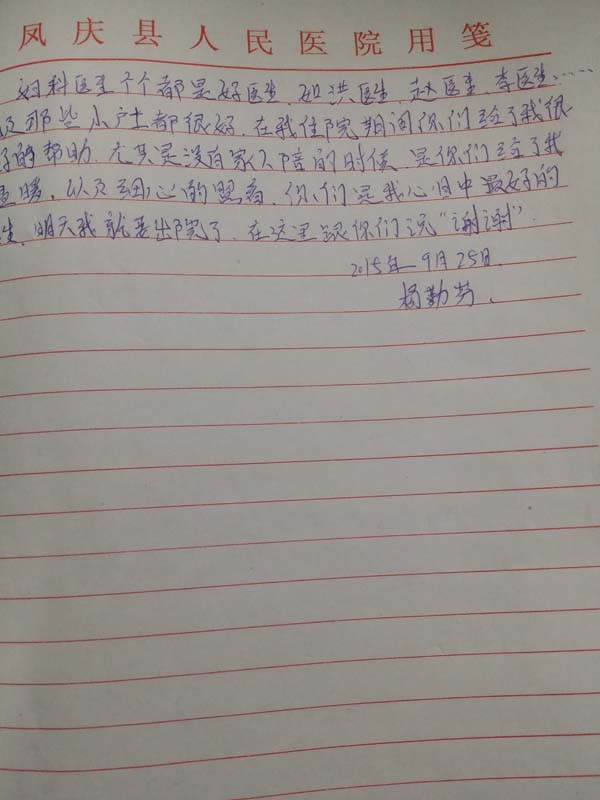 凤庆县人民医院用笺
妇科医生个个都是好医生.如洪医生.赵医生.李医生……
及那些小户士都很好.在我住院期间你们给了我很
好的帮助.尤其是没有家人陪的时侯.是你们给了我
温暖.以及细心的照看.你们是我心目中最好的
生.明天我就要出院了.在这里跟你们说“谢谢”.
2015年9月25日.
杨勤芬.